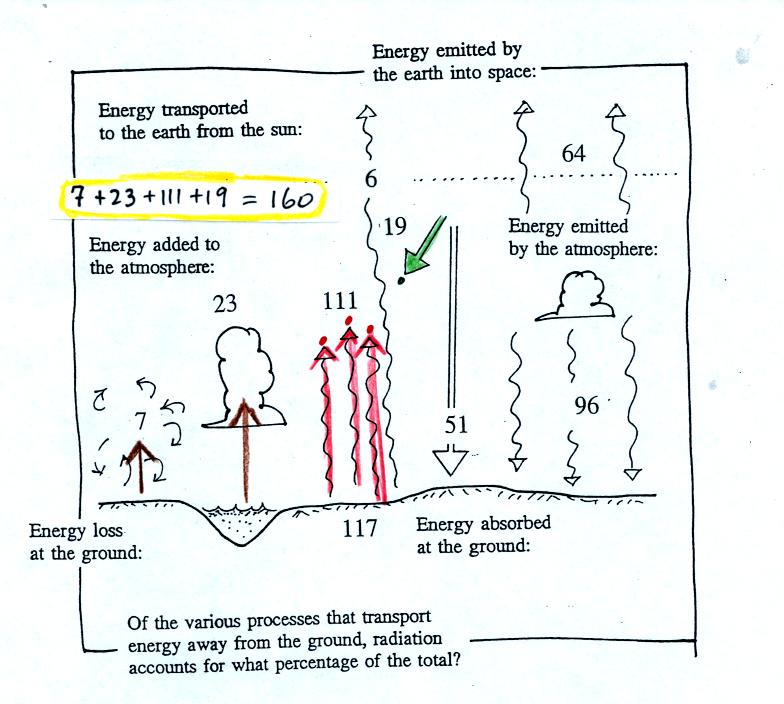 Energy emitted by
the earth into space:
Energy transported
to the earth from the sun:
64
6
7 + 23 + 111 + 19 = 160
19
Energy emitted
by the atmosphere:
Energy added to
the atmosphere:
23
111
7
96
51
117
Energy absorbed
at the ground:
Energy loss
at the ground:
Of the various processes that transport
energy away from the ground, radiation
accounts for what percentage of the total?